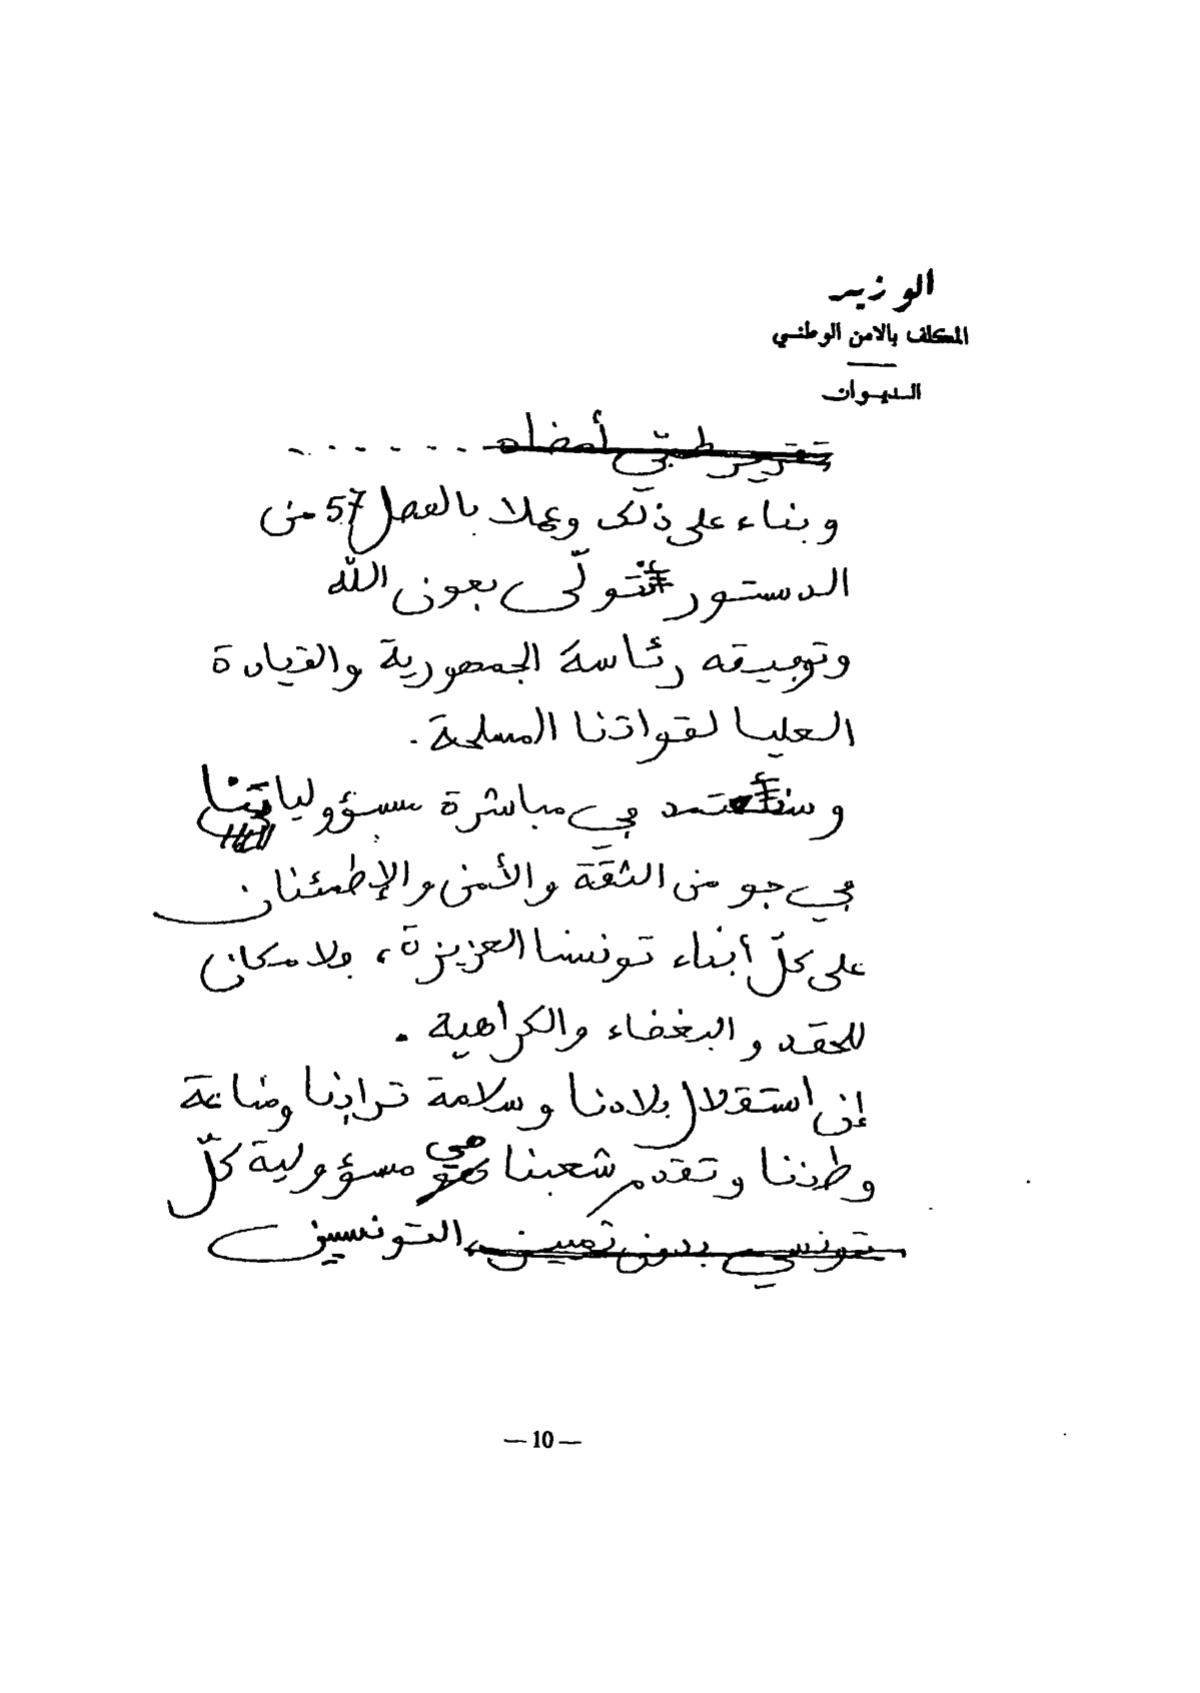 الوزير
المكلف بالامن الوطني
الديوان
تقرير طبّي أمضاه ......
وبناء على ذلك وعملا بالفصل 57 من
الدستور نتولّى بعون الله
وتوفيقه رئاسة الجمهورية والقيادة
العليا لقواتنا المسلحة.
وسنعتمد في مباشرة مسؤولياتنا
في جو من الثقة والأمن والإطمئنان
على كلّ أبناء تونسنا العزيزة، فلا مكان
للحقد والبغضاء والكراهية.
إن استقلال بلادنا وسلامة ترابنا ومناعة
وطننا وتقدم شعبنا هي مسؤولية كلّ
تونسي بدون تمييز، التونسيين
— 10 —